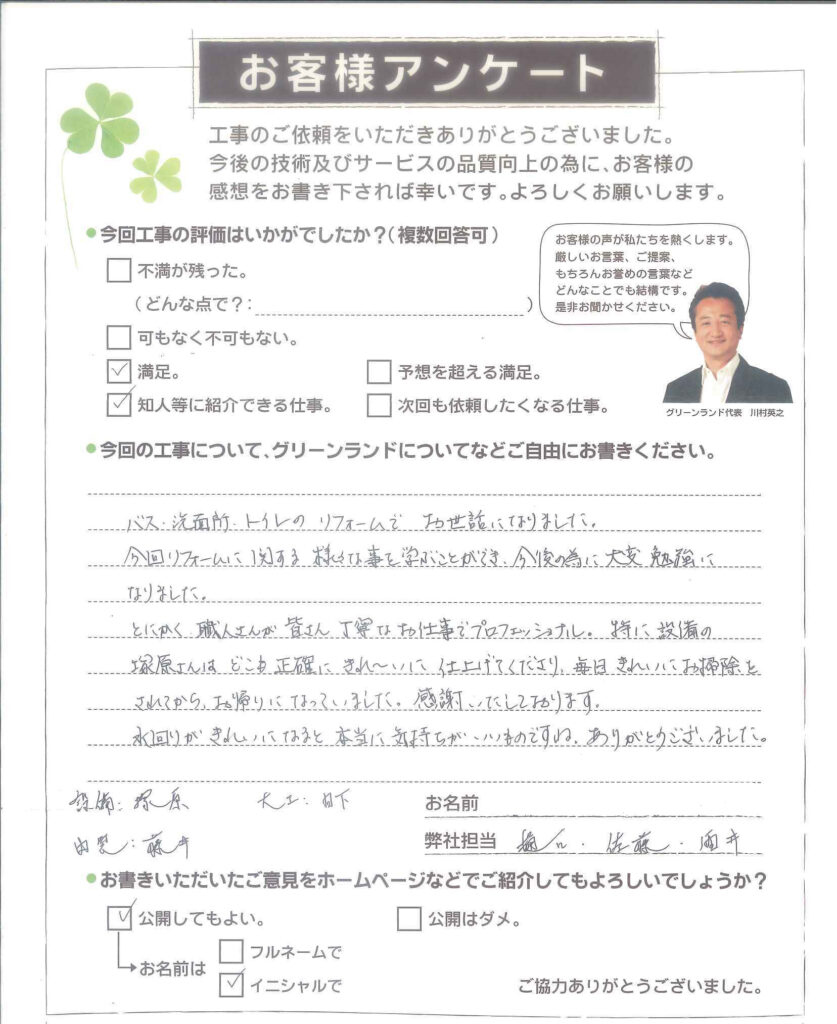 お客様アンケート
工事のご依頼をいただきありがとうございました。
今後の技術及びサービスの品質向上の為に、お客様の
感想をお書き下されば幸いです。よろしくお願いします。
今回工事の評価はいかがでしたか?(複数回答可)
不満が残った。
(どんな点で?: )
可もなく不可もない。
満足。
予想を超える満足。
知人等に紹介できる仕事。
次回も依頼したくなる仕事。
お客様の声が私たちを熱くします。
厳しいお言葉、ご提案、
もちろんお誉めの言葉など
どんなことでも結構です。
是非お聞かせください。
グリーンランド代表 川村英之
今回の工事について、グリーンランドについてなどご自由にお書きください。
バス・洗面所・トイレの リフォームで お世話になりました。
今回リフォームに関する 様々な事を学ぶことができ、今後の為に 大変 勉強に
なりました。
とにかく 職人さんが 皆さん 丁寧なお仕事でプロフェッショナル。 特に 設備の
塚原さんは どこも 正確に きれ〜いに 仕上げてくださり、毎日 きれいにお掃除を
されてから、お帰りになっていました。感謝いたしております。
水回りが きれいになると 本当に 気持ちが いいものですね。ありがとうございました。
設備:塚原 大工:日下
お名前
内装:藤井
弊社担当 ・佐藤・酒井
お書きいただいたご意見をホームページなどでご紹介してもよろしいでしょうか?
公開してもよい。
公開はダメ。
お名前は
フルネームで
イニシャルで
ご協力ありがとうございました。